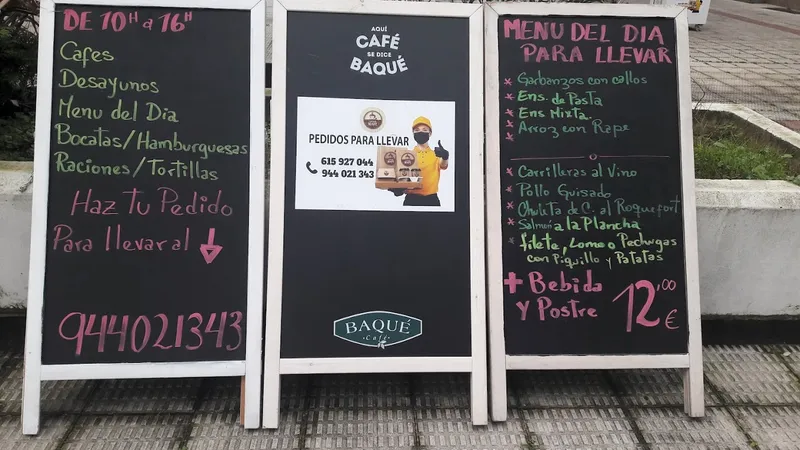 DE 10H a 16H
Cafes
Desayunos
Menu del Dia
Bocatas/Hamburguesas
Raciones/Tortillas
Haz Tu Pedido
Para llevar al
944021343
AQUÍ
CAFÉ
SE DICE
BAQUÉ
PEDIDOS PARA LLEVAR
615 927 044
944 021 343
BAQUÉ
Café
MENU DEL DIA
PARA LLEVAR
* Garbanzos con callos
* Ens. de Pasta
* Ens Mixta
* Arroz con Rape
o
* Carrilleras al Vino
* Pollo Guisado
* Chuleta de C. al Roquefort
* Salmon a la Plancha
* filete, Lomo o Pechugas
con Piquillo y Patatas
+ Bebida
y Postre
12,00
€